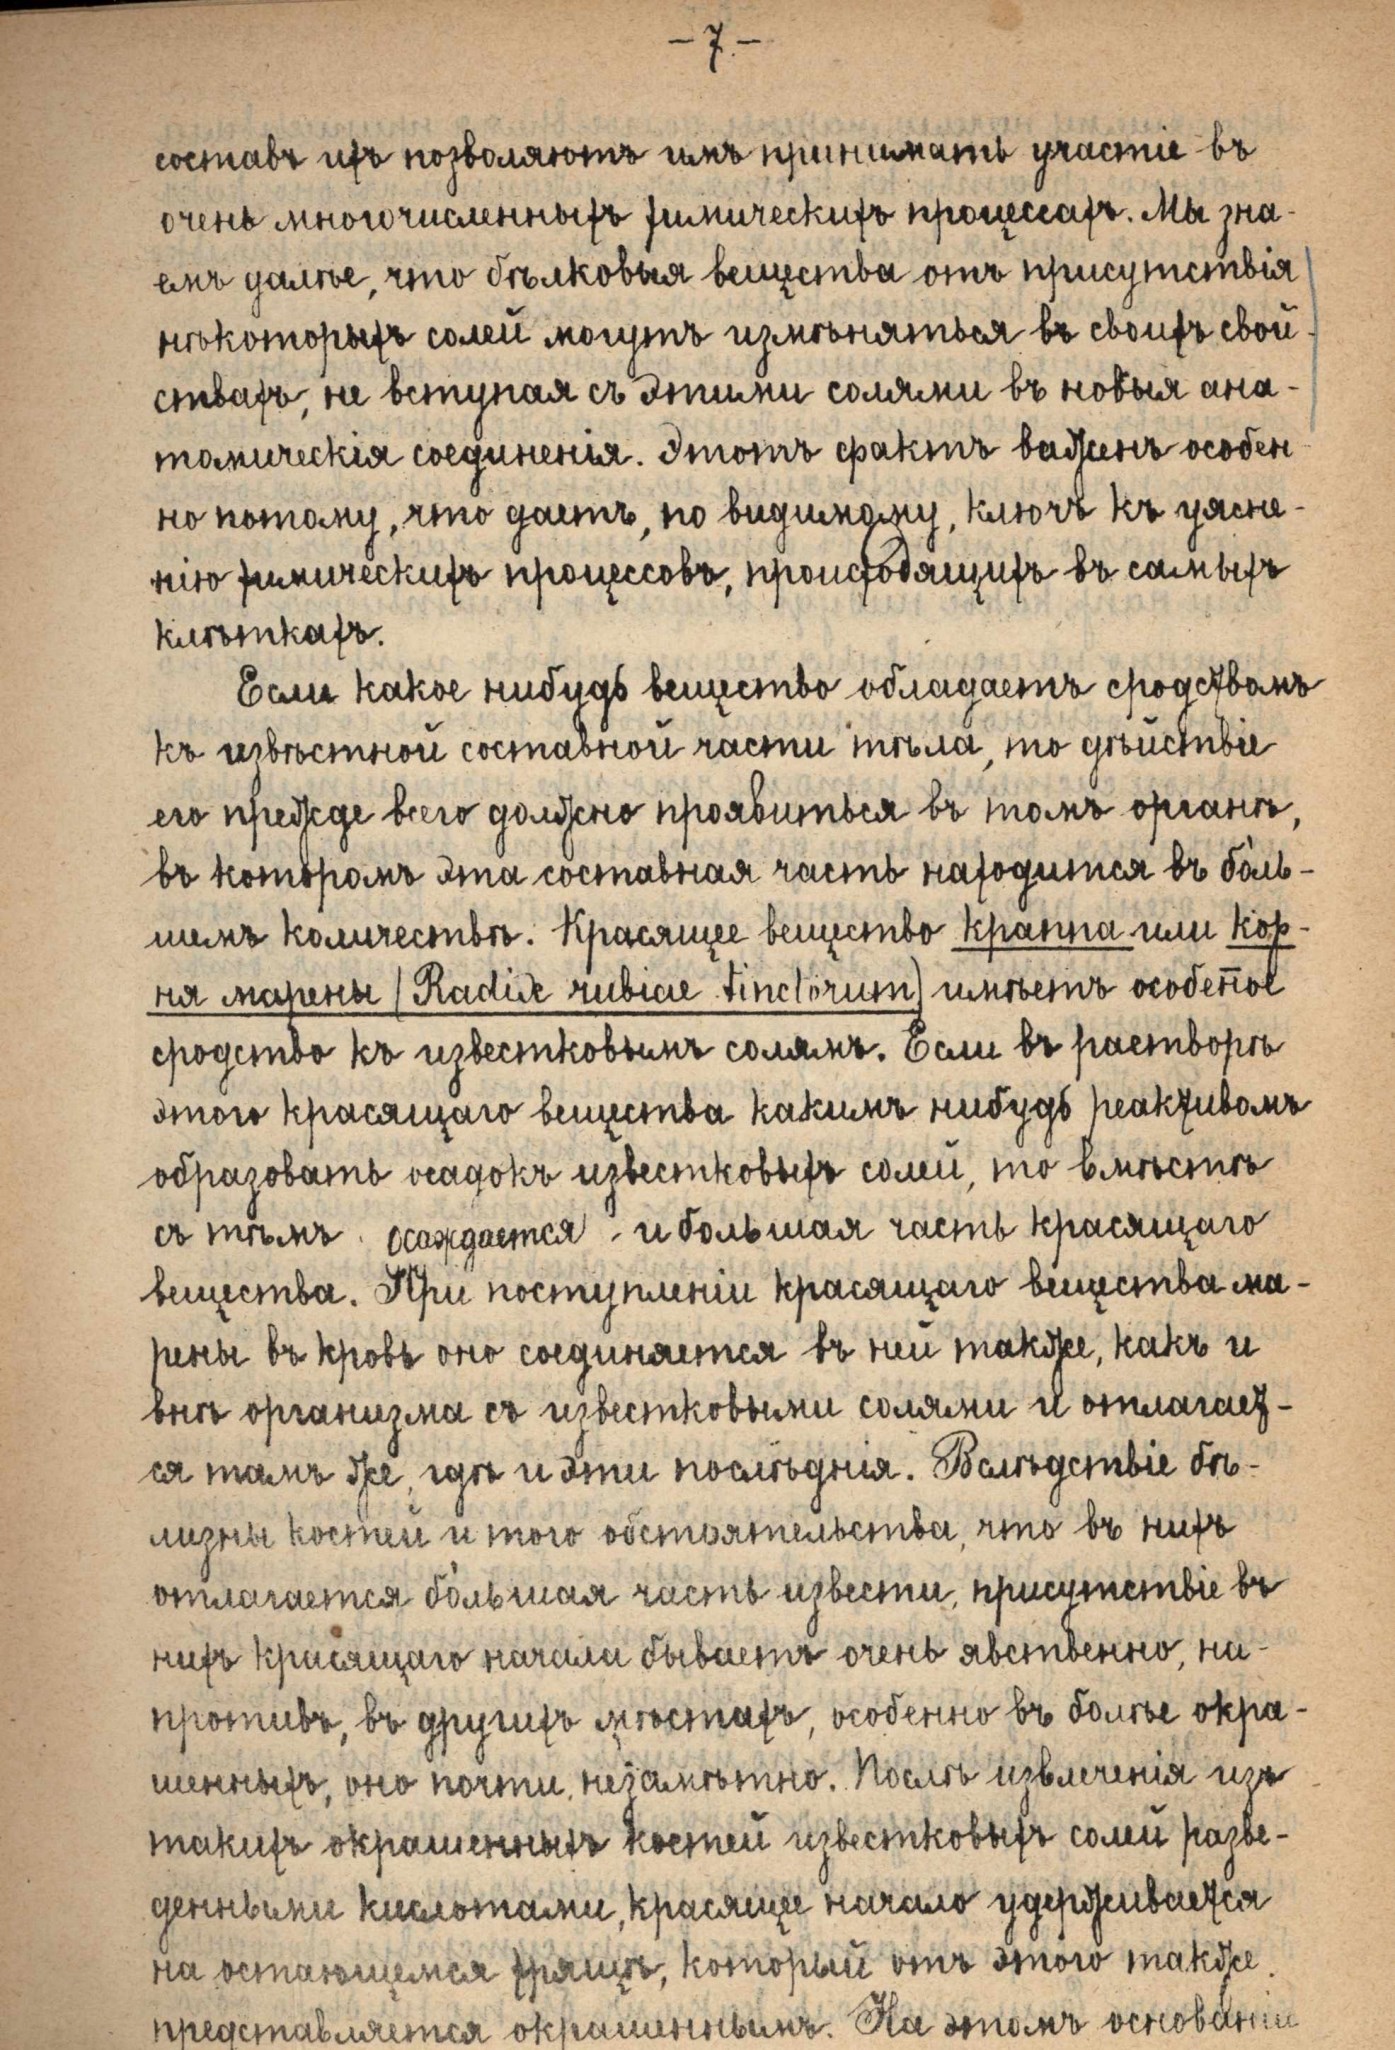 – 7. –
составъ ихъ позволяютъ имъ принимать участіе въ
очень многочисленныхъ химическихъ процессахъ. Мы зна-
емъ далѣе, что бѣлковыя вещества отъ присутствія
нѣкоторыхъ солей могутъ измѣняться въ своихъ свой-
ствахъ, не вступая съ этими солями въ новыя ана-
томическія соединенія. Этотъ фактъ важенъ особен-
но потому, что даетъ, по видимому, ключъ къ уясне-
нію химическихъ процессовъ, происходящихъ въ самыхъ
клѣткахъ.
Если какое нибудь вещество обладаетъ сродствомъ
къ извѣстной составной части тѣла, то дѣйствіе
его прежде всего должно проявиться въ томъ органѣ,
въ которомъ эта составная часть находится въ бо́ль-
шемъ количествѣ. Красящее вещество краппа или кор-
ня марены (Radix rubiae tinctorum) имѣетъ особен̅ое
сродство къ известковымъ солямъ. Если въ растворѣ
этого красящаго вещества какимъ нибудь реактивомъ
образовать осадокъ известковыхъ солей, то вмѣстѣ
съ тѣмъ осаждается и большая часть красящаго
вещества. При поступленіи красящаго вещества ма-
рены въ кровь оно соединяется въ ней также, какъ и
внѣ организма съ известковыми солями и отлагает-
ся тамъ же, гдѣ и эти послѣднія. Вслѣдствіе бѣ-
лизны костей и того обстоятельства, что въ нихъ
отлагается бо́льшая часть извести, присутствіе въ
нихъ красящаго начала бываетъ очень явственно, на-
противъ, въ другихъ мѣстахъ, особенно въ болѣе окра-
шенныхъ, оно почти незамѣтно. Послѣ извлеченія изъ
такихъ окрашенныхъ костей известковыхъ солей разве-
денными кислотами, красящее начало удерживается
на остающемся хрящѣ, который отъ этого также
представляется окрашеннымъ. На этомъ основаніи